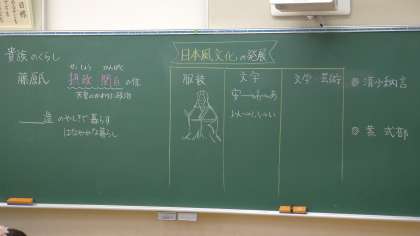 貴族のくらし
せっしょう かんぱく
藤原氏 摂政 関白の位
天皇のかわりに政治
造のやしきで暮らす
はなやかな暮らし
日本風文化の発展
服装
文字
安→あ
文学 芸術
清少納言
紫 式部